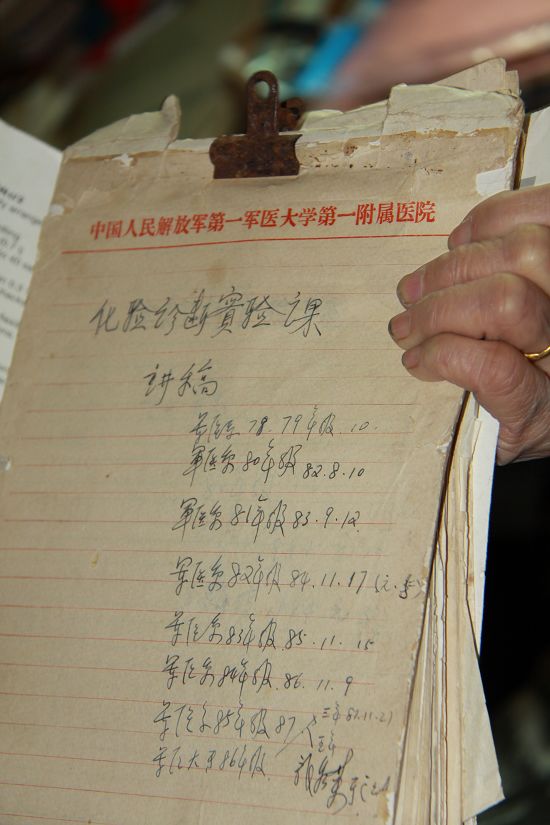 中国人民解放军第一军医大学第一附属医院
化验诊断實验课
讲稿
军医系78.79年级.10.
軍医系80年级 82.8.10
軍医系81年级 83.9.12
军医系82年级 84.11.17
军医系83年级 85.11.15
军医系84年级.86.11.9
军医系85年级 87.
三年 87.11.21
五年
军医大专86年级.